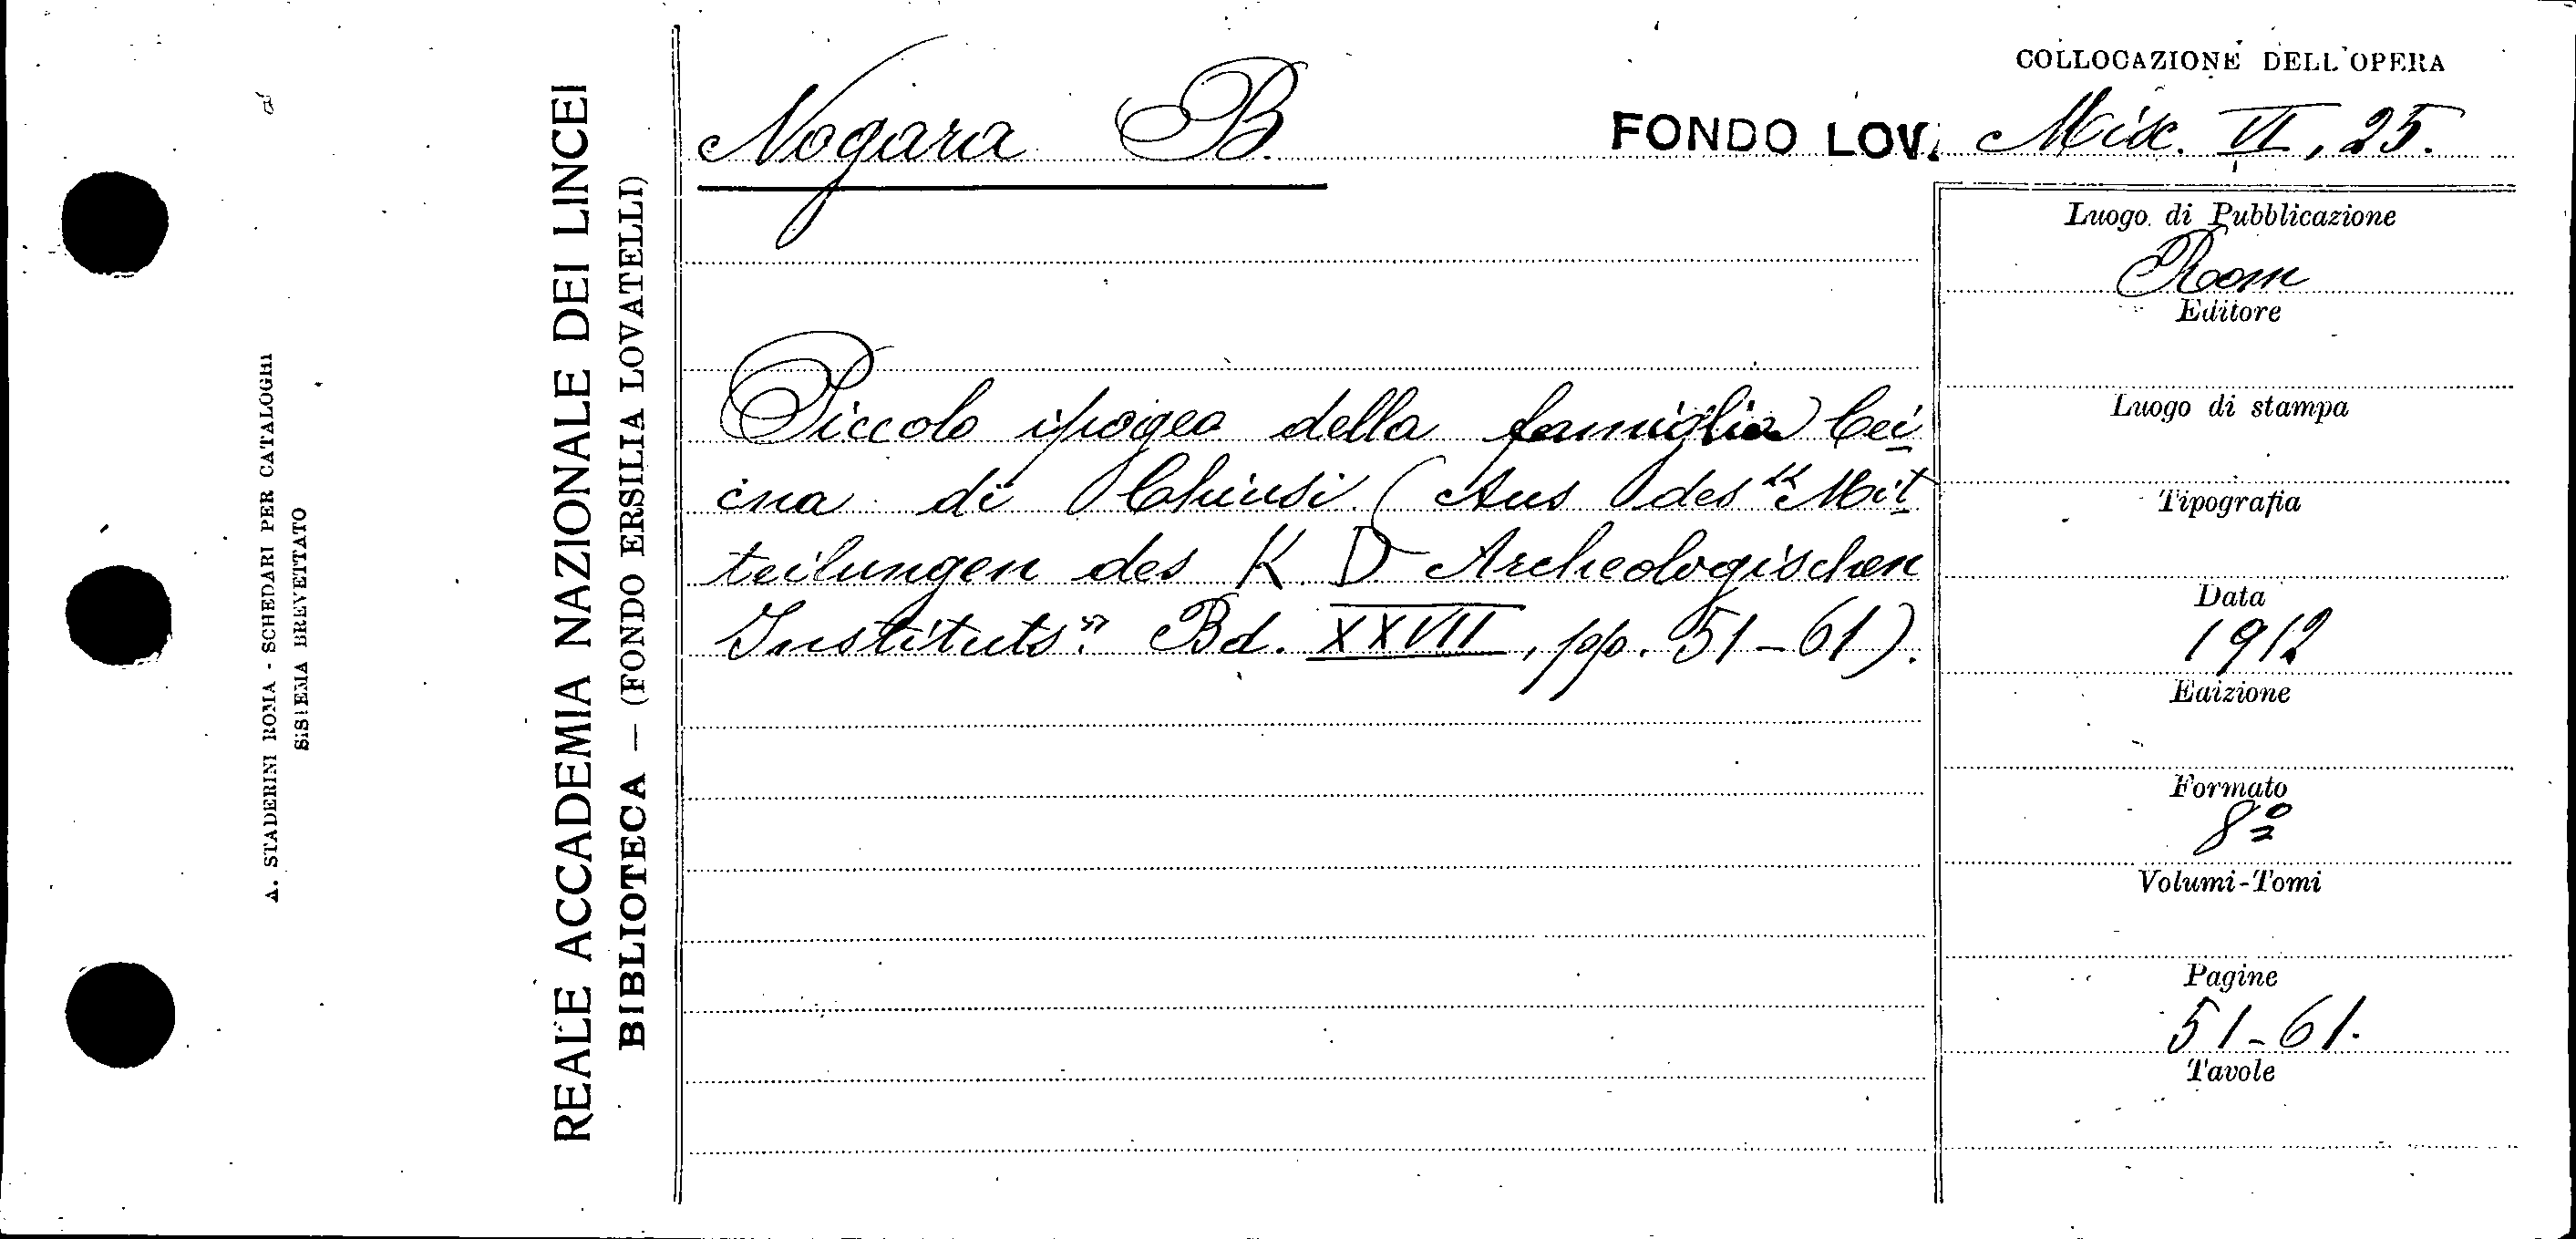 COLLOCAZIONE DELL'OPERA
Nogara B.
FONDO LOV. Misc. VI, 25.
Piccolo ipogeo della famiglia Cei
cna di Chiusi (Aus des "Mit
teilungen des K. D. Archeologischen
Instituts". Bd. XXVII, pp. 51-61).
Luogo di Pubblicazione
Rom
Editore
Luogo di stampa
Tipografia
Data
1912
Edizione
Formato
8º
Volumi-Tomi
Pagine
51-61.
Tavole
REALE ACCADEMIA NAZIONALE DEI LINCEI
BIBLIOTECA — (FONDO ERSILIA LOVATELLI)
A. STADERINI ROMA - SCHEDARI PER CATALOGHI
SISTEMA BREVETTATO